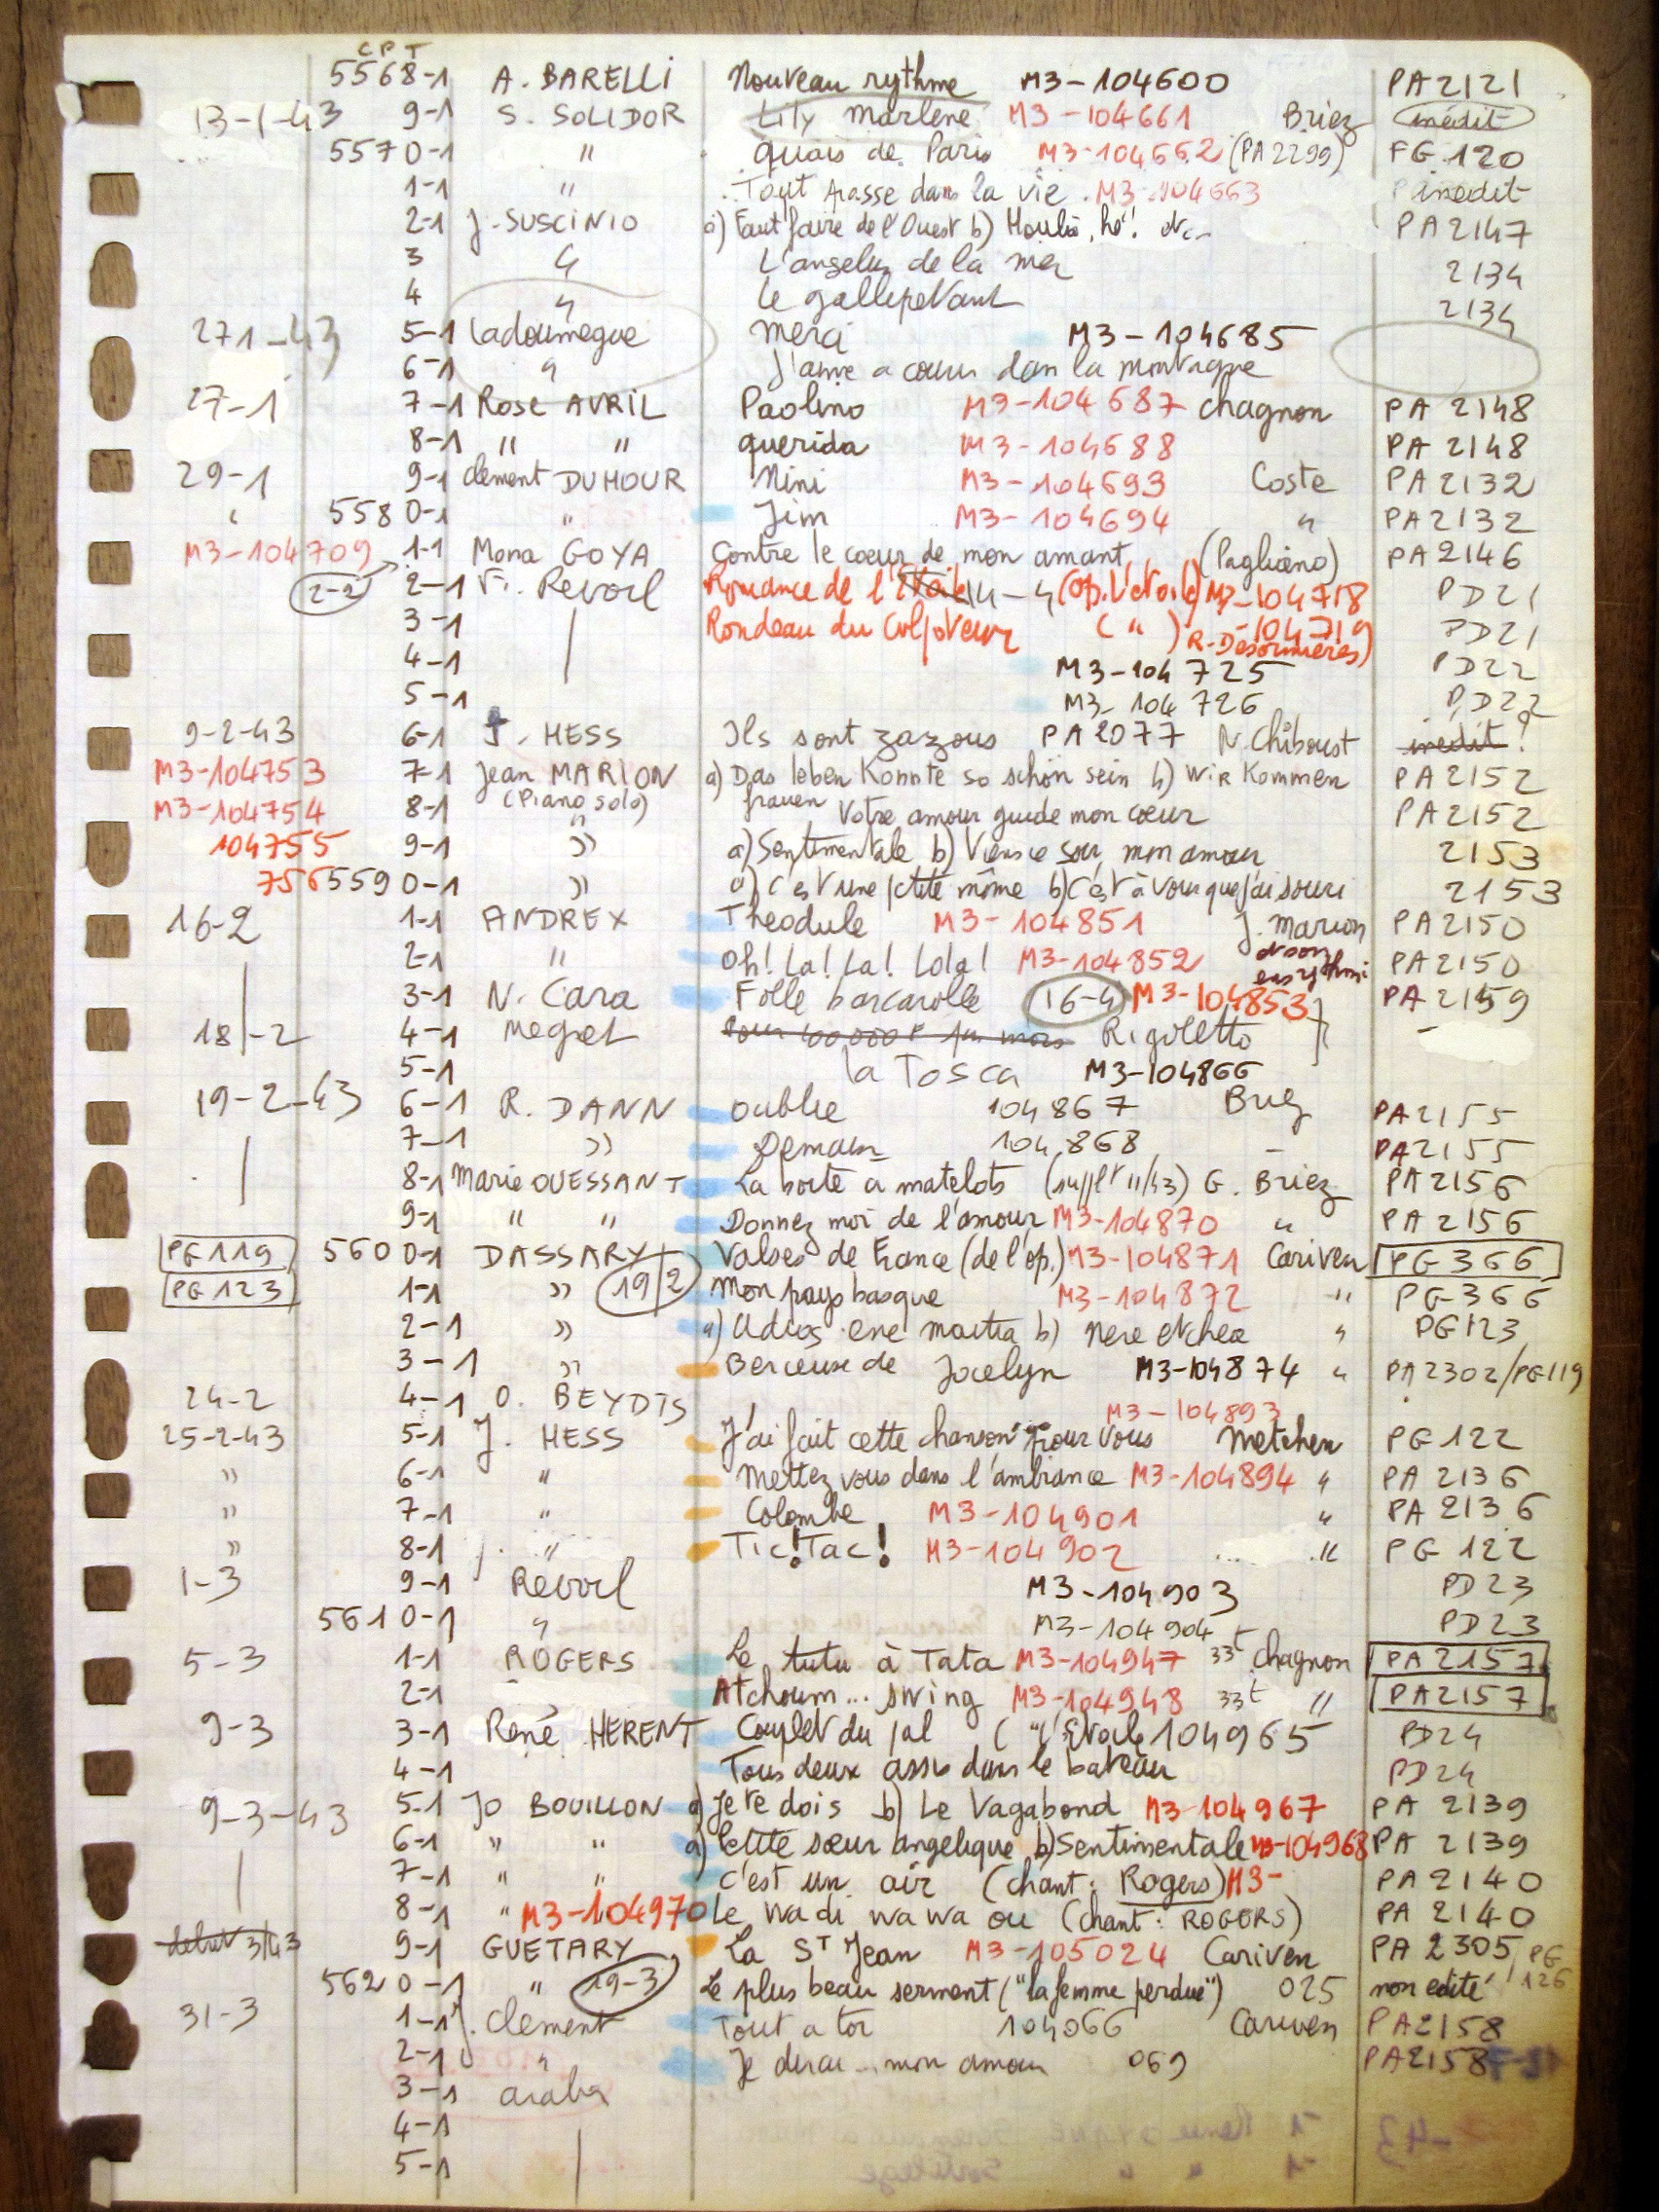 CPT
5568-1 A. BARELLI Nouveau rythme M3-104600 PA2121
13-1-43 9-1 S. SOLIDOR Lily Marlène M3-104661 Briez inédit
5570-1 " quais de Paris M3-104662 (PA2299) FG.120
1-1 " Tout passe dans la vie. M3-104663 inédit
2-1 J. SUSCINIO a) Faut faire de l'Ouest b) Houla, hé!
3 " L'angelus de la mer 2134
PA2147
4 " Le gallipetant 2134
271-43 5-1 Ladoumegue Merci M3-104685
6-1 " J'aime a courir dans la montagne
27-1 7-1 Rose AVRIL Paolino M3-104687 Chagnon PA 2148
8-1 " " querida M3-104688 PA 2148
29-1 9-1 Clement DUHOUR Nini M3-104693 Coste PA2132
5580-1 " Jim M3-104694 " PA2132
M3-104709 1-1 Mona GOYA Contre le coeur de mon amant (Pagliano) PA2146
2-2 2-1 F. Revoil Romance de l'Etoile 14-4 (Op. l'etoile) M3-104718 PD21
3-1 Rondeau du Colporteur ( " ) -104719 R-Desormières) PD21
4-1 M3-104725 PD22
5-1 M3-104726 PD22
9-2-43 6-1 J. HESS Ils sont zazous PA2077 N. Chiboust inédit?
M3-104753 7-1 Jean MARION a) Das leben Konnte so schön sein b) Wir Kommen PA2152
M3-104754 8-1 (Piano solo) frauen Votre amour guide mon coeur PA2152
104755 9-1 " a) Sentimentale b) Viens ce soir, mon amour 2153
756 5590-1 " a) C'est une petite môme b) C'est à vous que j'ai souri 2153
16-2 1-1 ANDREX Theodule M3-104851 J. Marion PA2150
2-1 " Oh! La! La! Lola! M3-104852 et son PA2150
3-1 N. Cara Folle barcarolle 16-4 M3-104853 PA2159
18-2 4-1 Megret Pour 100.000 F par mois Rigoletto -
5-1 la Tosca M3-104866
19-2-43 6-1 R. DANN oublie 104867 Briez PA2155
7-1 " Demain 104868 - PA2155
8-1 Marie OUESSANT La boite a matelots (supplt 11/43) G. Briez PA2156
9-1 " " Donnez moi de l'amour M3-104870 " PA2156
PG119 5600-1 DASSARY Valses de France (de l'op.) M3-104871 Cariven PG366
PG123 1-1 " 19/2 Mon pays basque M3-104872 " PG366
2-1 " a) Adios ene maitia b) Nere etchea " PG123
3-1 " Berceuse de Jocelyn M3-104874 " PA2302/PG119
24-2 4-1 O. BEYDTS
M3-104893
25-2-43 5-1 J. HESS J'ai fait cette chanson pour vous Metehen PG122
" 6-1 " Mettez vous dans l'ambiance M3-104894 " PA 2136
" 7-1 " Colombe M3-104901 " PA 2136
" 8-1 " Tic! Tac! M3-104902 " PG 122
1-3 9-1 Revoil M3-104903 PD23
5610-1 " M3-104904 PD23
5-3 1-1 ROGERS Le tutu à Tata M3-104947 33t Chagnon PA2157
2-1 Atchoum... swing M3-104948 33t " PA2157
9-3 3-1 René HERENT Couplet du ( "l'Etoile 104965 PD24
4-1 Tous deux assis dans le bateau PD24
9-3-43 5-1 JO BOUILLON a) Je te dois b) Le Vagabond M3-104967 PA 2139
6-1 " " a) Petite soeur angelique b) Sentimentale M3-104968 PA 2139
7-1 " " C'est un air (chant: Rogers) M3- PA2140
8-1 " M3-104970 Le wa di wa wa ou (chant: ROGERS) PA 2140
debut 3/43 9-1 GUETARY La St Jean M3-105024 Cariven PA 2305/PG 126
5620-1 " 19-3 Le plus beau serment ("la femme perdue") 025 non edité
31-3 1-1 J. Clement Tout a toi 104066 Cariven PA2158
2-1 " Je dirai... mon amour 069 PA2158
3-1 araba
4-1
5-1